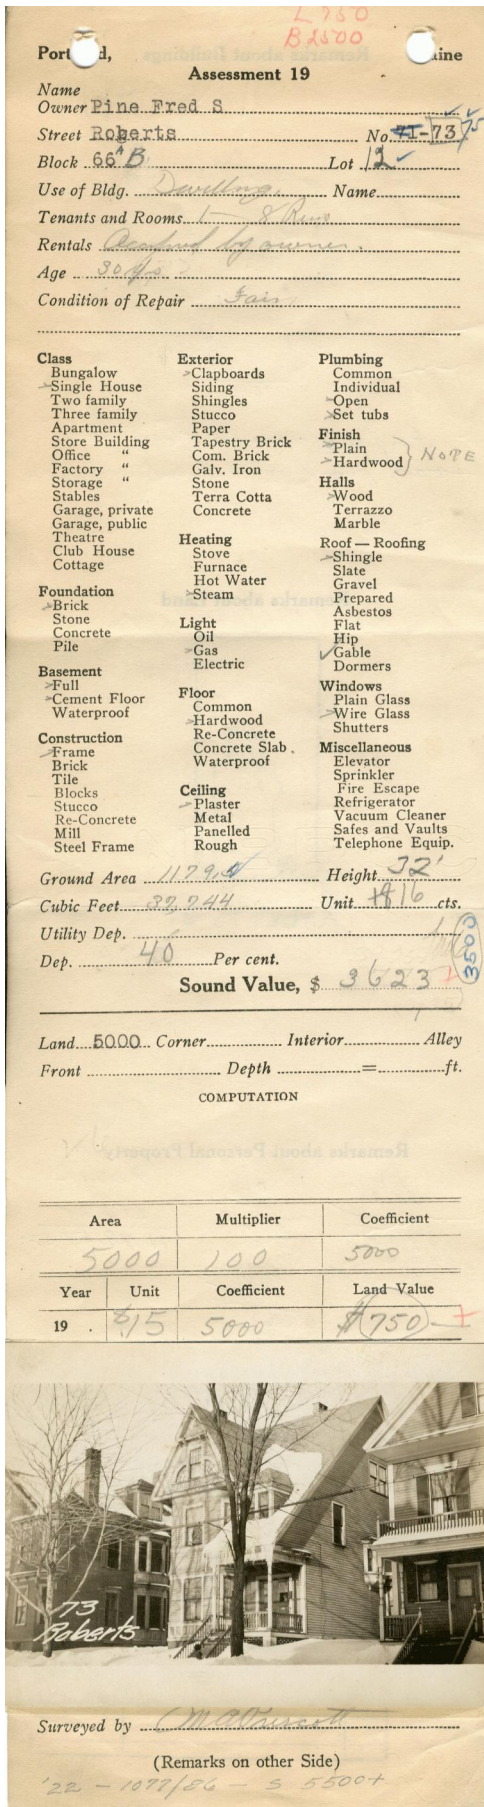 L 750
B 2500
Portland, Maine
Assessment 19
Name
Owner Pine Fred S
Street Roberts No. 71-73/75
Block 66^A B Lot 12
Use of Bldg. Dwelling Name
Tenants and Rooms 1 - 8 Rms
Rentals Occupied by owner.
Age 30 yrs
Condition of Repair Fair
Class
Bungalow
Single House
Two family
Three family
Apartment
Store Building
Office "
Factory "
Storage "
Stables
Garage, private
Garage, public
Theatre
Club House
Cottage
Foundation
Brick
Stone
Concrete
Pile
Basement
Full
Cement Floor
Waterproof
Construction
Frame
Brick
Tile
Blocks
Stucco
Re-Concrete
Mill
Steel Frame
Exterior
Clapboards
Siding
Shingles
Stucco
Paper
Tapestry Brick
Com. Brick
Galv. Iron
Stone
Terra Cotta
Concrete
Heating
Stove
Furnace
Hot Water
Steam
Light
Oil
Gas
Electric
Floor
Common
Hardwood
Re-Concrete
Concrete Slab
Waterproof
Ceiling
Plaster
Metal
Panelled
Rough
Plumbing
Common
Individual
Open
Set tubs
Finish
Plain
Hardwood NOTE
Halls
Wood
Terrazzo
Marble
Roof — Roofing
Shingle
Slate
Gravel
Prepared
Asbestos
Flat
Hip
Gable
Dormers
Windows
Plain Glass
Wire Glass
Shutters
Miscellaneous
Elevator
Sprinkler
Fire Escape
Refrigerator
Vacuum Cleaner
Safes and Vaults
Telephone Equip.
Ground Area 1179.5 Height 32'
Cubic Feet 37,744 Unit 16 cts.
Utility Dep.
Dep. 40 Per cent.
3500
Sound Value, $ 3623 +
Land 5000 Corner Interior Alley
Front Depth = ft.
COMPUTATION
Area Multiplier Coefficient
5000 100 5000
Year Unit Coefficient Land Value
19 . $.15 5000 $750 - +
73
Roberts
Surveyed by M A Prescott
(Remarks on other Side)
'22 - 1077/86 - S 5500+